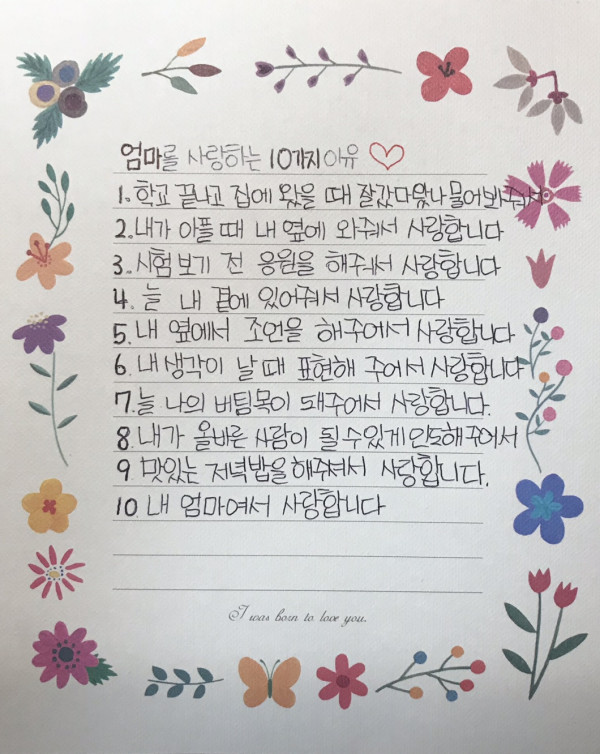 엄마를 사랑하는 10가지 이유
1. 학교 끝나고 집에 왔을 때 잘갔다왔나 물어봐줘서
2. 내가 아플 때 내 옆에 와줘서 사랑합니다
3. 시험보기 전 응원을 해줘서 사랑합니다
4. 늘 내 곁에 있어줘서 사랑합니다
5. 내 옆에서 조언을 해주어서 사랑합니다
6. 내 생각이 날 때 표현해 주어서 사랑합니다
7. 늘 나의 버팀목이 돼주어서 사랑합니다.
8. 내가 올바른 사람이 될 수 있게 인도해주어서
9 맛있는 저녁밥을 해주셔서 사랑합니다.
10 내 엄마여서 사랑합니다
I was born to love you.